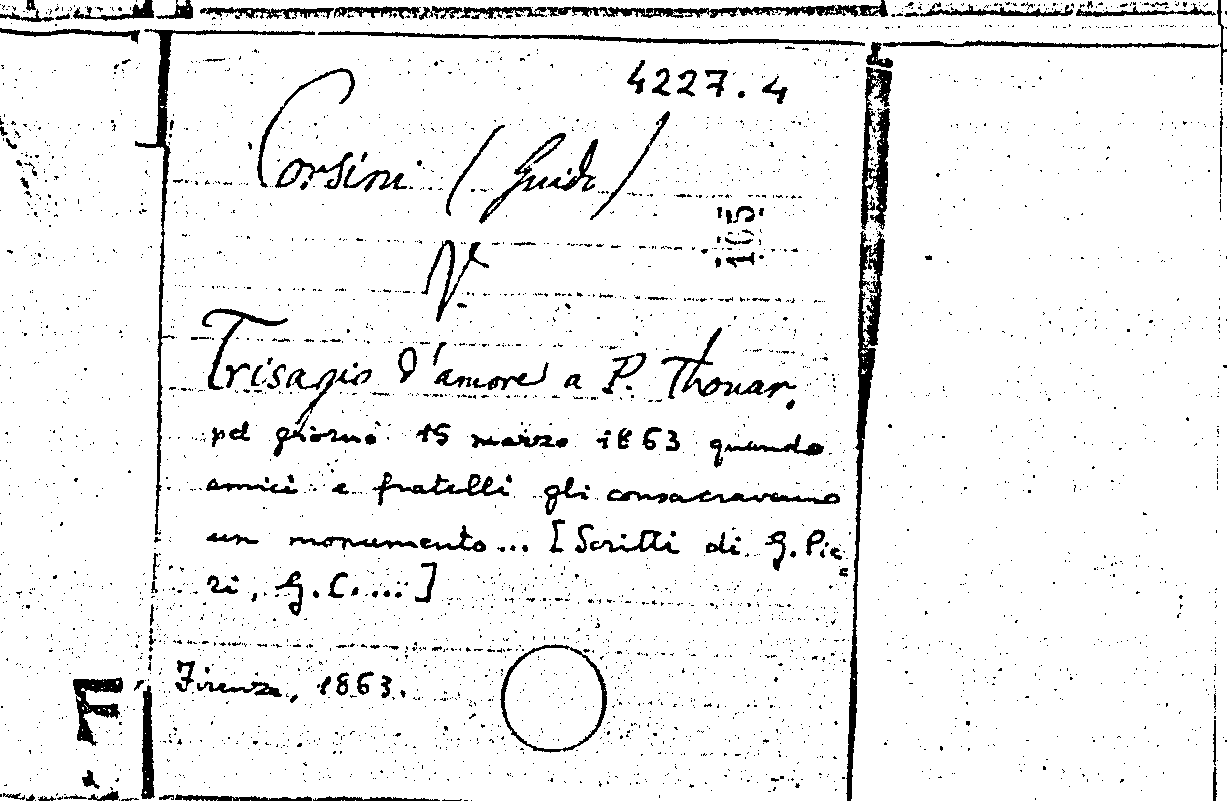 4227.4
Corsini (Guido)
105
Vᵉ
Trisagio d'amore a P. Thouar.
pel giorno 15 marzo 1863 quando
amici e fratelli gli consacravano
un monumento... [Scritti di G. Pie=
ri, G.C....]
Firenze, 1863.